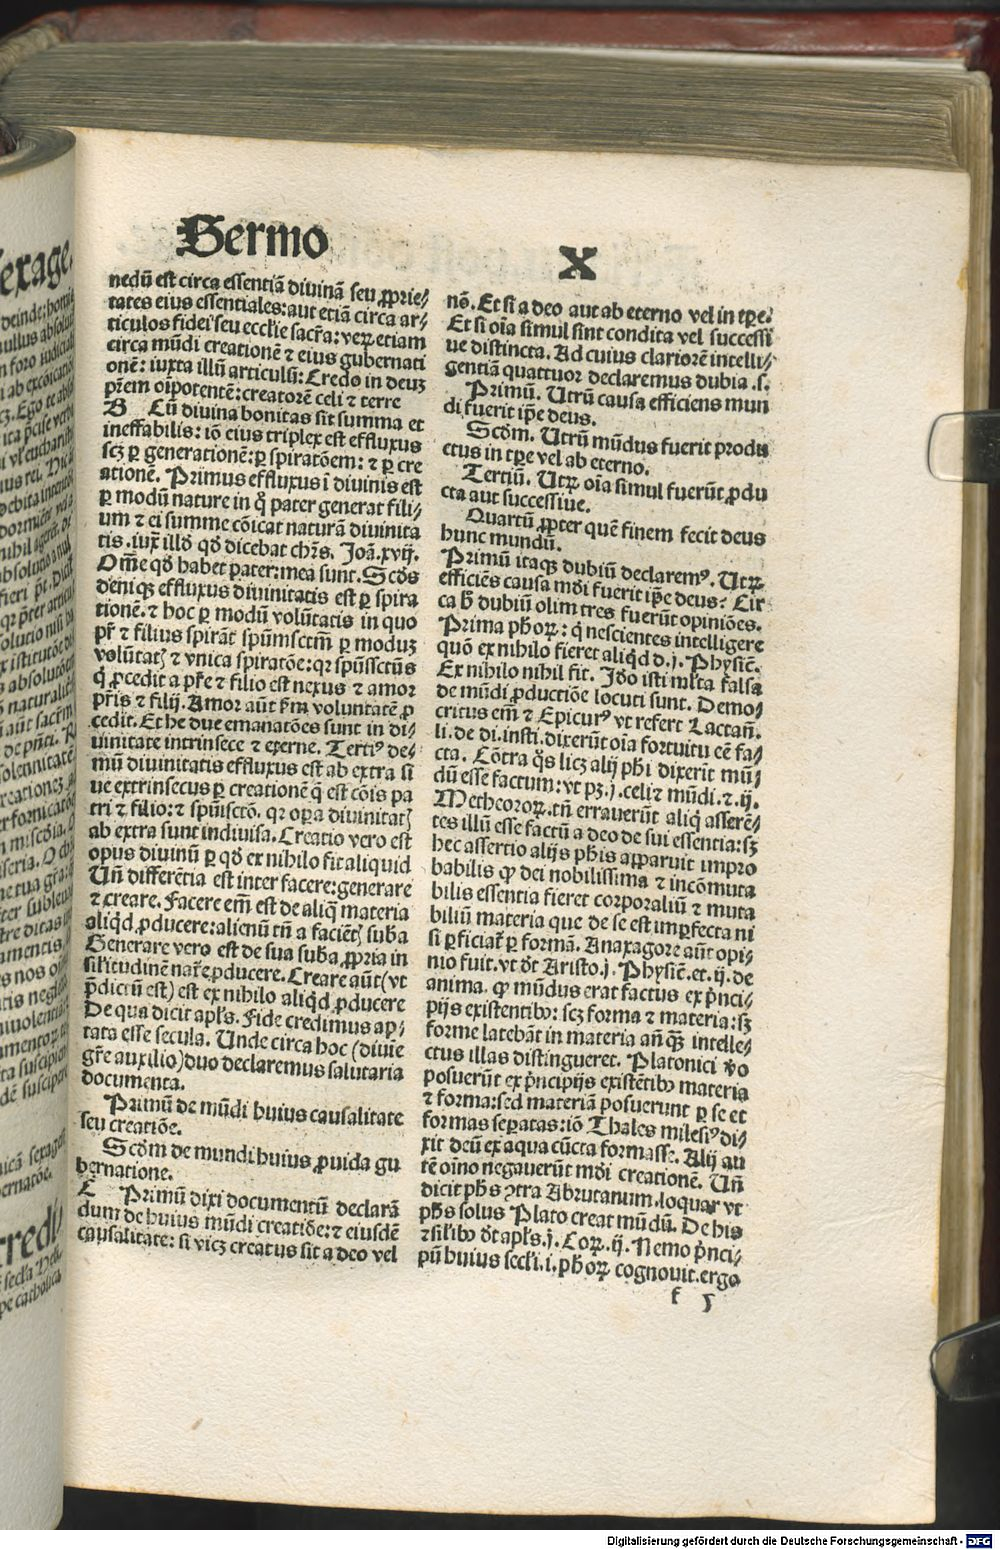 Sermo
X
nedũ est circa essentiã diuinã seu ꝓprie⸗
tates eius essentiales: aut etiã circa ar⸗
ticulos fidei seu ecclie sacr̃a: veꝝ etiam
circa mũdi creationẽ ⁊ eius gubernati
onẽ: iuxta illũ articulũ: Credo in deuꝫ
pr̃em oĩpotentẽ: creatorẽ celi ⁊ terre
B Cũ diuina bonitas sit summa et
ineffabilis: iõ eius triplex est effluxus
scꝫ ꝑ generationẽ: ꝑ spiratõem: ⁊ ꝑ cre
ationẽ. Primus effluxus ĩ diuinis est
ꝑ modũ nature in q̃ pater generat fili⸗
um ⁊ ei summe cõicat naturã diuinita
tis. iux̃ illð qð dicebat chr̃s. Joã. xvij.
Om̃e qð habet pater: mea sunt. Scðs
deniqꝫ effluxus diuinitatis est ꝑ spira
tionẽ. ⁊ hoc ꝑ modũ volũtatis in quo
pr̃ ⁊ filius spirãt spũmsctm̃ ꝑ moduꝫ
volũtatꝭ ⁊ vnica spiratõe: qꝛ spũssctũs
q̃ ꝓcedit a pr̃e ⁊ filio est nexus ⁊ amor
pr̃is ⁊ filij. Amor aũt ẜm voluntatẽ ꝓ
cedit. Et he due emanatões sunt in di⸗
uinitate intrinsece ⁊ eterne. Tertiꝰ de⸗
mũ diuinitatis effluxus est ab extra si
ue extrinsecus ꝑ creationẽ q̃ est cõis pa
tri ⁊ filio: ⁊ spũisctõ. qꝛ oꝑa diuinitatꝭ
ab extra sunt indiuisa. Creatio vero est
opus diuinũ ꝑ qð ex nihilo fit aliquid
Uñ differẽtia est inter facere: generare
⁊ creare. Facere em̃ est de aliq̃ materia
aliqð ꝓducere: alienũ tñ a faciẽtꝭ suba
Generare vero est de sua suba ꝓpria in
sil̃itudinẽ nat̃e ꝓducere. Creare aũt (vt
p̃dictũ est) est ex nihilo aliqð ꝓducere
De qua dicit apl̃s. Fide credimus ap⸗
tata esse secula. Unde circa hoc (diuĩe
gr̃e auxilio) duo declaremus salutaria
documenta.
Primũ de mũdi huius causalitate
seu creatiõe.
Scðm de mundi huius ꝓuida gu
bernatione.
C Primũ dixi documentũ declarã
dum de huius mũdi creatiõe: ⁊ eiusdẽ
causalitate: si vicꝫ creatus sit a deo vel
nõ. Et si a deo aut ab eterno vel in tꝑe.
Et si oĩa simul sint condita vel successi
ue distincta. Ad cuius clariorẽ intelli⸗
gentiã quattuor declaremus dubia .s.
Primũ. Utrũ causa efficiens mun
di fuerit ip̃e deus.
Scðm. Utrũ mũdus fuerit produ
ctus in tꝑe vel ab eterno.
Tertiũ. Utꝝ oĩa simul fuerũt ꝓdu
cta aut successiue.
Quartũ ꝓpter quẽ finem fecit deus
hunc mundũ.
Primũ itaqꝫ dubiũ declaremꝰ. Utꝝ
efficiẽs causa mõi fuerit ip̃e deus? Cir
ca ħ dubiũ olim tres fuerũt opiniões.
Prima pħoꝝ: q̃ nescientes intelligere
quõ ex nihilo fieret aliqð d. j. Physiẽ.
Ex nihilo nihil fit. Jðo isti ml̃ta falsa
de mũdi ꝓductiõe locuti sunt. Demo⸗
critus em̃ ⁊ Epicurꝰ vt refert Lactañ.
li. de di. insti. dixerũt oĩa fortuitu eẽ fa⸗
cta. Cõtra q̃s licꝫ alij pħi dixerit mũ⸗
dũ esse factum: vt pꝫ .j. celi ⁊ mũdi. ⁊ .ij.
Metheoroꝝ. tñ errauerũt aliq̃ asserẽ⸗
tes illũ esse factũ a deo de sui essentia: sꝫ
hec assertio alijs pħis apparuit impro
babilis qꝙ dei nobilissima ⁊ incõmuta
bilis essentia fieret corporaliũ ⁊ muta
biliũ materia que de se est imꝑfecta ni
si ꝑficiat̃ ꝑ formã. Anaxagore aũt opi⸗
nio fuit. vt ðt Aristo. j. Physiẽ. et .ij. de
anima. qꝙ mũdus erat factus ex p̃nci⸗
pijs existentibꝰ: scꝫ forma ⁊ materia: sꝫ
forme latebãt in materia añ qꝫ intelle⸗
ctus illas distingueret. Platonici ṽo
posuerũt ex p̃ncipijs existẽtibꝰ materia
⁊ forma: sed materiã posuerunt ꝑ se et
formas seꝑatas: iõ Thales milesiꝰ di⸗
xit deũ ex aqua cũcta formasse. Alij au
tẽ oĩno negauerũt mõi creationẽ. Uñ
dicit pħs ꝯtra Abrutanum. loquar vt
pħs solus Plato creat mũdũ. De his
⁊ sil̃ibꝰ ðt apl̃s. j. Coꝝ. ij. Nemo p̃nci⸗
pũ huius secl̃i. i. pħoꝝ cognouit. ergo
f 5